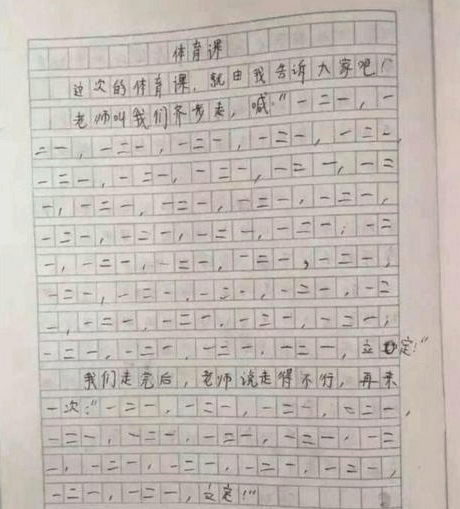 体育课
这次的体育课，就由我告诉大家吧！
老师叫我们齐步走，喊：“一二一，一
二一，一二一，一二一，一二一，一二一，
一二一，一二一，一二一，一二一，一二
一，一二一，一二一，一二一，一二一，
一二一，一二一，一二一，一二一；一二
一，一二一，一二一，一二一，一二一，
一二一，一二一，一二一，一二一，一二
一，一二一，一二一，一二一，一二一，
一二一，一二一，一二一，一二一，立定！”
我们走完后，老师说走得不行，再来
一次：“一二一，一二一，一二一，一二一，
一二一，一二一，一二一，一二一，一二
一，一二一，一二一，一二一，一二一，
一二一，一二一，立定！”